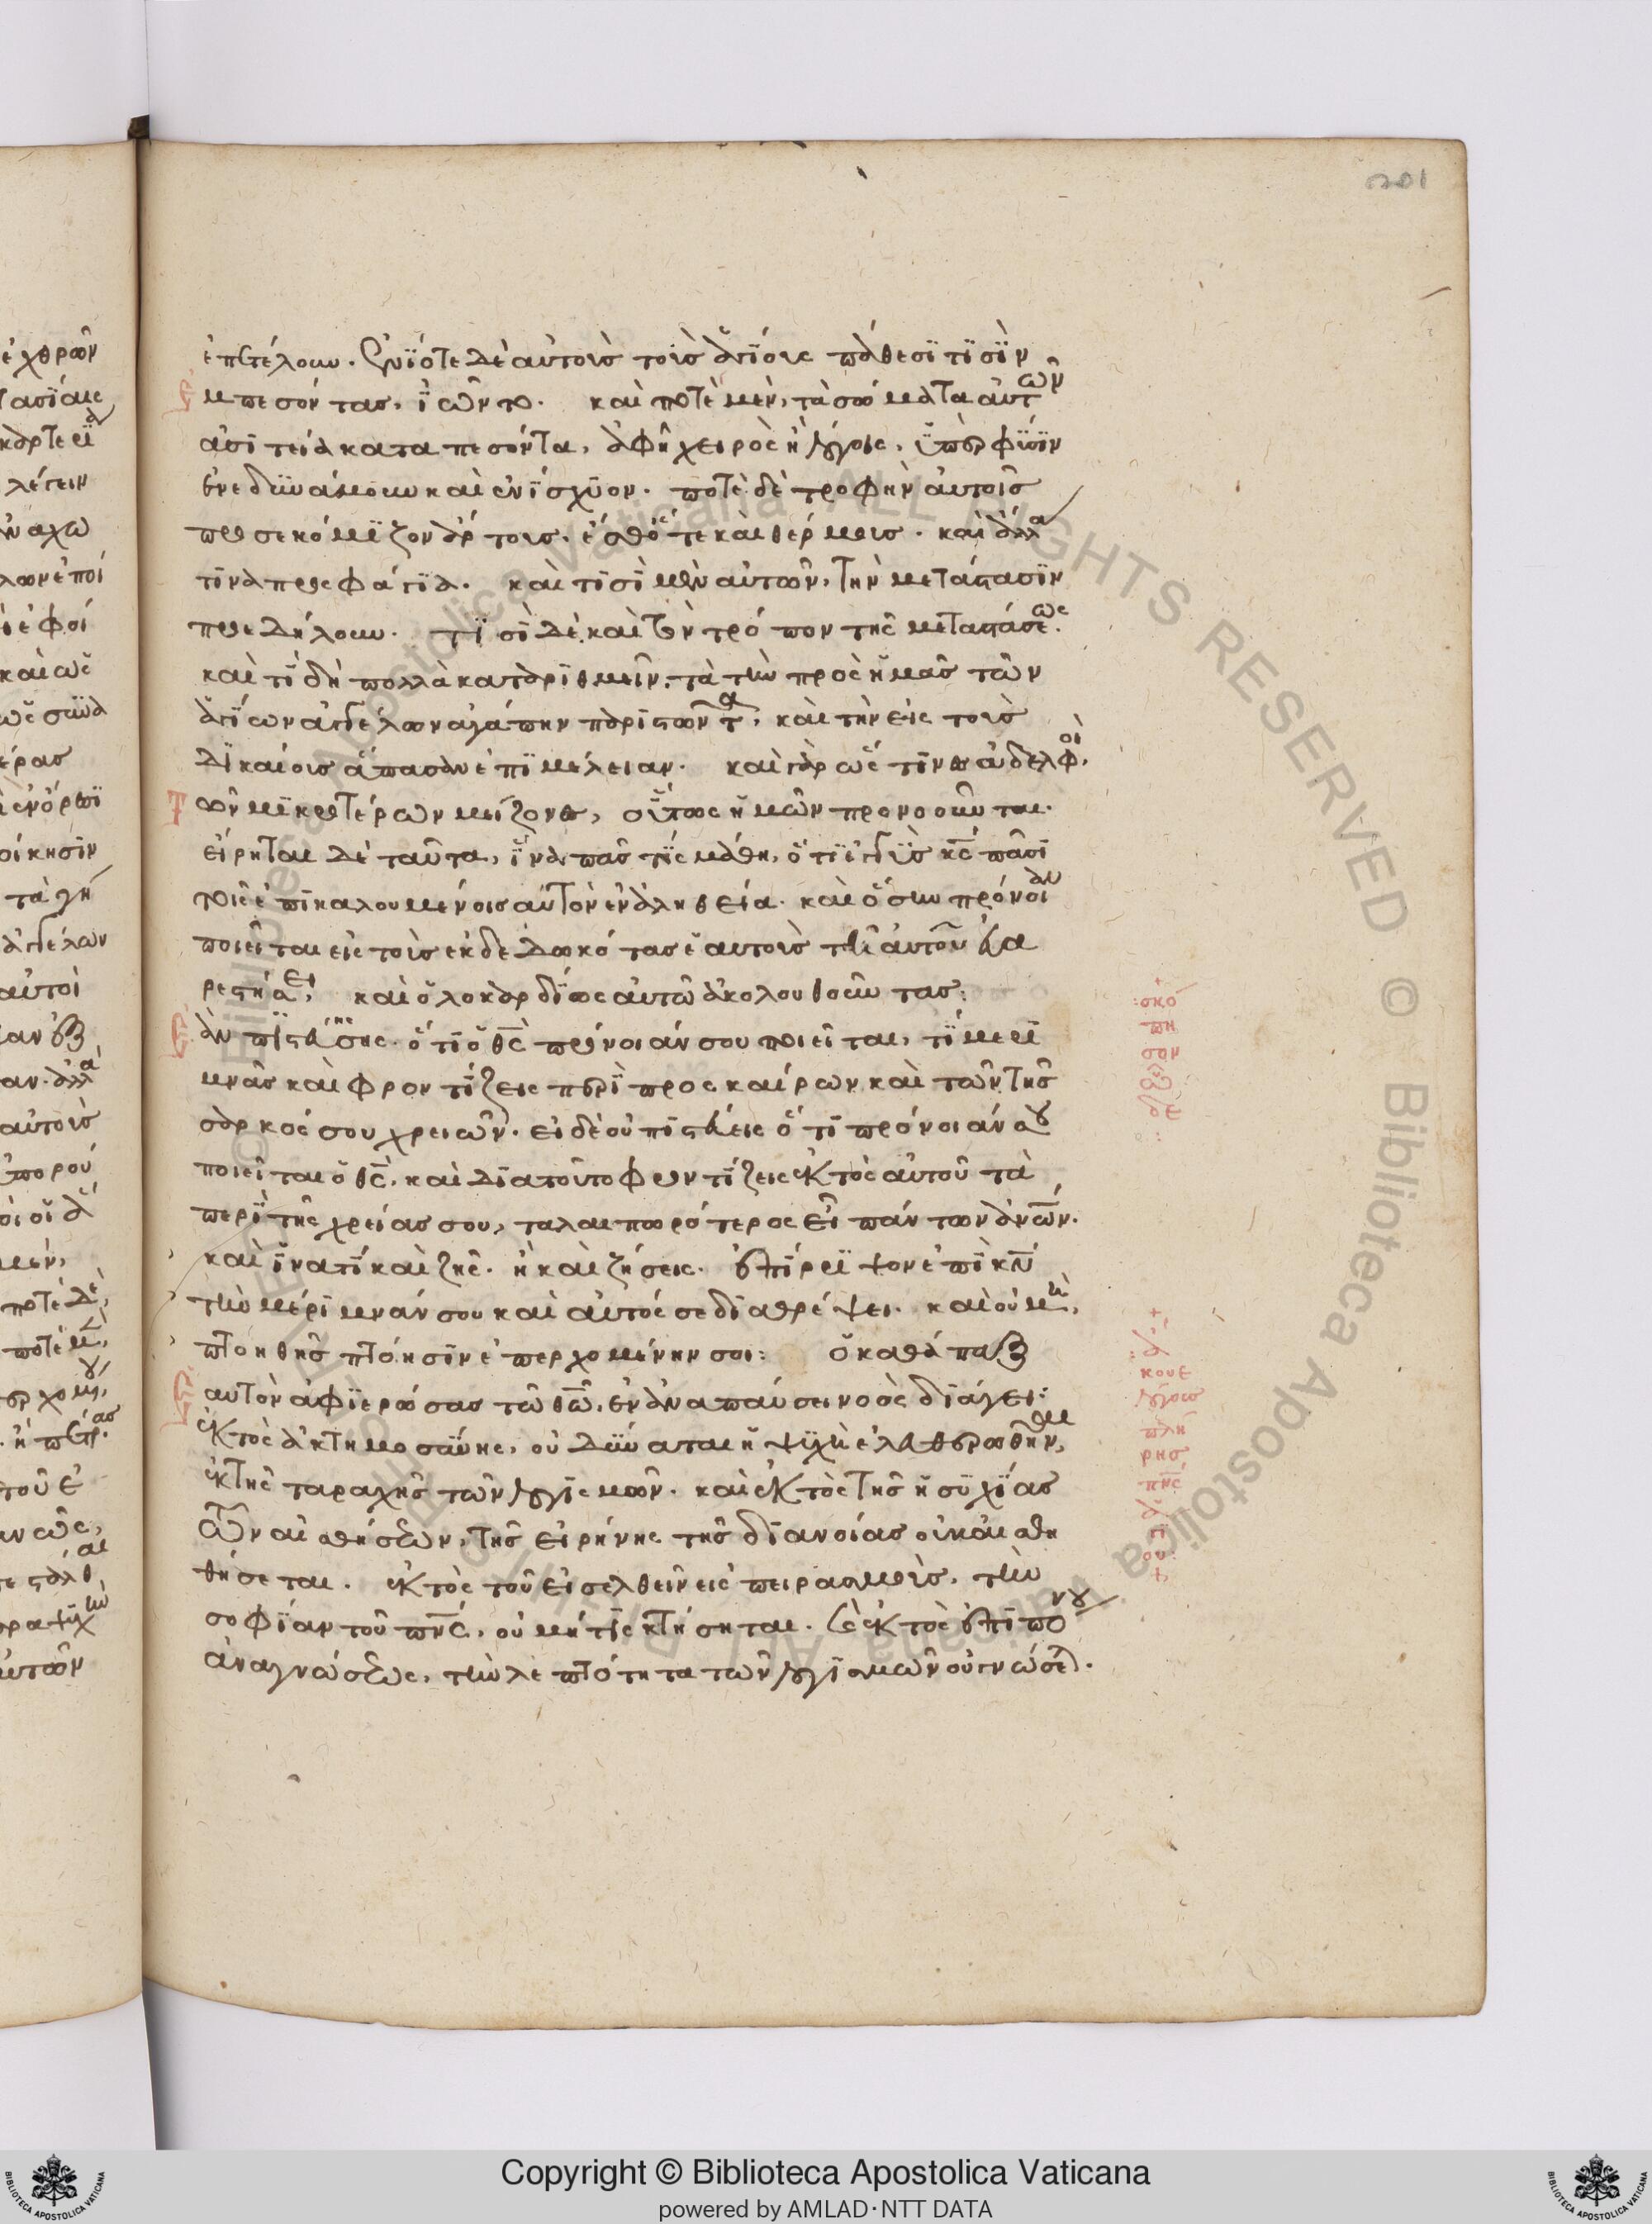 201
ἐπετέλουν. ἐνΐοτε δὲ αὐτοὺς τοὺς ἁγΐους πάθεσϊ τϊσῒν
ἐμπεσόντας, ἰῶντο. καὶ ποτὲ μὲν, τὰ σώματα αὐτῶν
ἀσιτεία καταπεσόντα, ἁφῇ χειρὸς ἢ λόγοις, ὑπὲρ φύσϊν
ἐνεδυνάμουν καὶ ἐνΐσχυον. ποτὲ δὲ τροφὴν αὐτοῖς
προσεκόμϊζον ἄρτους. ἔσθ' ὅτε καὶ θέρμους. καὶ ἄλλα
τινὰ προσφάγϊα. καὶ τισὶ μὲν αὐτῶν, τὴν μετάστασϊν
προεδήλουν. τϊσὶ δὲ καὶ τὸν τρόπον τῆς μεταστάσεως.
καὶ τί δὴ πολλὰ καταριθμεῖν, τὰ τὴν πρὸς ἡμᾶς τῶν
ἁγΐων ἀγγέλων ἀγάπην παριστῶντα, καὶ τὴν εἰς τοὺς
δικαίους ἅπασαν ἐπϊμέλειαν. καὶ γὰρ ὥς τινες ἀδελφοὶ
τῶν μϊκροτέρων μείζονες, οὕτως ἡμῶν προνοοῦνται.
εἴρηται δὲ ταῦτα, ἵνα πᾶς τϊς μάθη, ὅτι ἐγγὺς κς πᾶσϊ
τοῖς ἐπικαλουμένοις αὐτὸν ἐν ἀληθεία. καὶ ὅσην πρόνοιαν
ποιεῖται εἰς τοὺς ἐκδεδωκότας ἑαυτοὺς τῇ αὐτοῦ εὐα
ρεστήσει, καὶ ὁλοκαρδΐως αὐτῶ ἀκολουθοῦντας:
ἐὰν πιστεύσης ὅτι ὁ θς πρόνοιάν σου ποιεῖται, τί μερϊ
μνᾶς καὶ φροντίζεις περὶ προσκαίρων καὶ τῶν τῆς
σαρκός σου χρειῶν. εἰ δὲ οὐ πιστεύεις ὅτι πρόνοιάν σου
ποιεῖται ὁ θς, καὶ διατοῦτο φροντίζεις ἐκτὸς αὐτοῦ τὰ
περὶ τῆς χρείας σου, ταλαιπωρότερος εἶ πάντων ἀνων.
καὶ ἵνατί καὶ ζῆς. ἢ καὶ ζήσεις. ἐπίρριψον ἐπὶ κν
τὴν μέριμνάν σου καὶ αὐτός σε διαθρέψει. καὶ οὐ μὴ,
πτοηθῆς πτόησιν ἐπερχομένην σοι: ὁ καθάπαξ
ἑαυτὸν ἀφιερώσας τῶ θω, ἐν ἀναπαύσει νοὸς διάγει:
ἐκτὸς ἀκτημοσύνης, οὐ δύναται ἡ ψυχὴ ἐλευθερωθῆναι,
ἐκ τῆς ταραχῆς τῶν λογισμῶν. καὶ ἐκτὸς τῆς ἡσυχίας
τῶν αἰσθήσεων, τῆς εἰρήνης τῆς διανοίας οὐκ αἰσθη
θήσεται. ἐκτὸς τοῦ εἰσελθεῖν εἰς πειρασμοὺς, τὴν
σοφΐαν τοῦ πνς, οὐ μή τις κτήσηται. καὶ ἐκτὸς ἐπιπόνου
ἀναγνώσεως, τὴν λεπτότητα τῶν λογισμῶν οὐ γνώσεται.
σκό
πη
σον
ἄ
κουε
λόγους
πλή
ρης
πνς